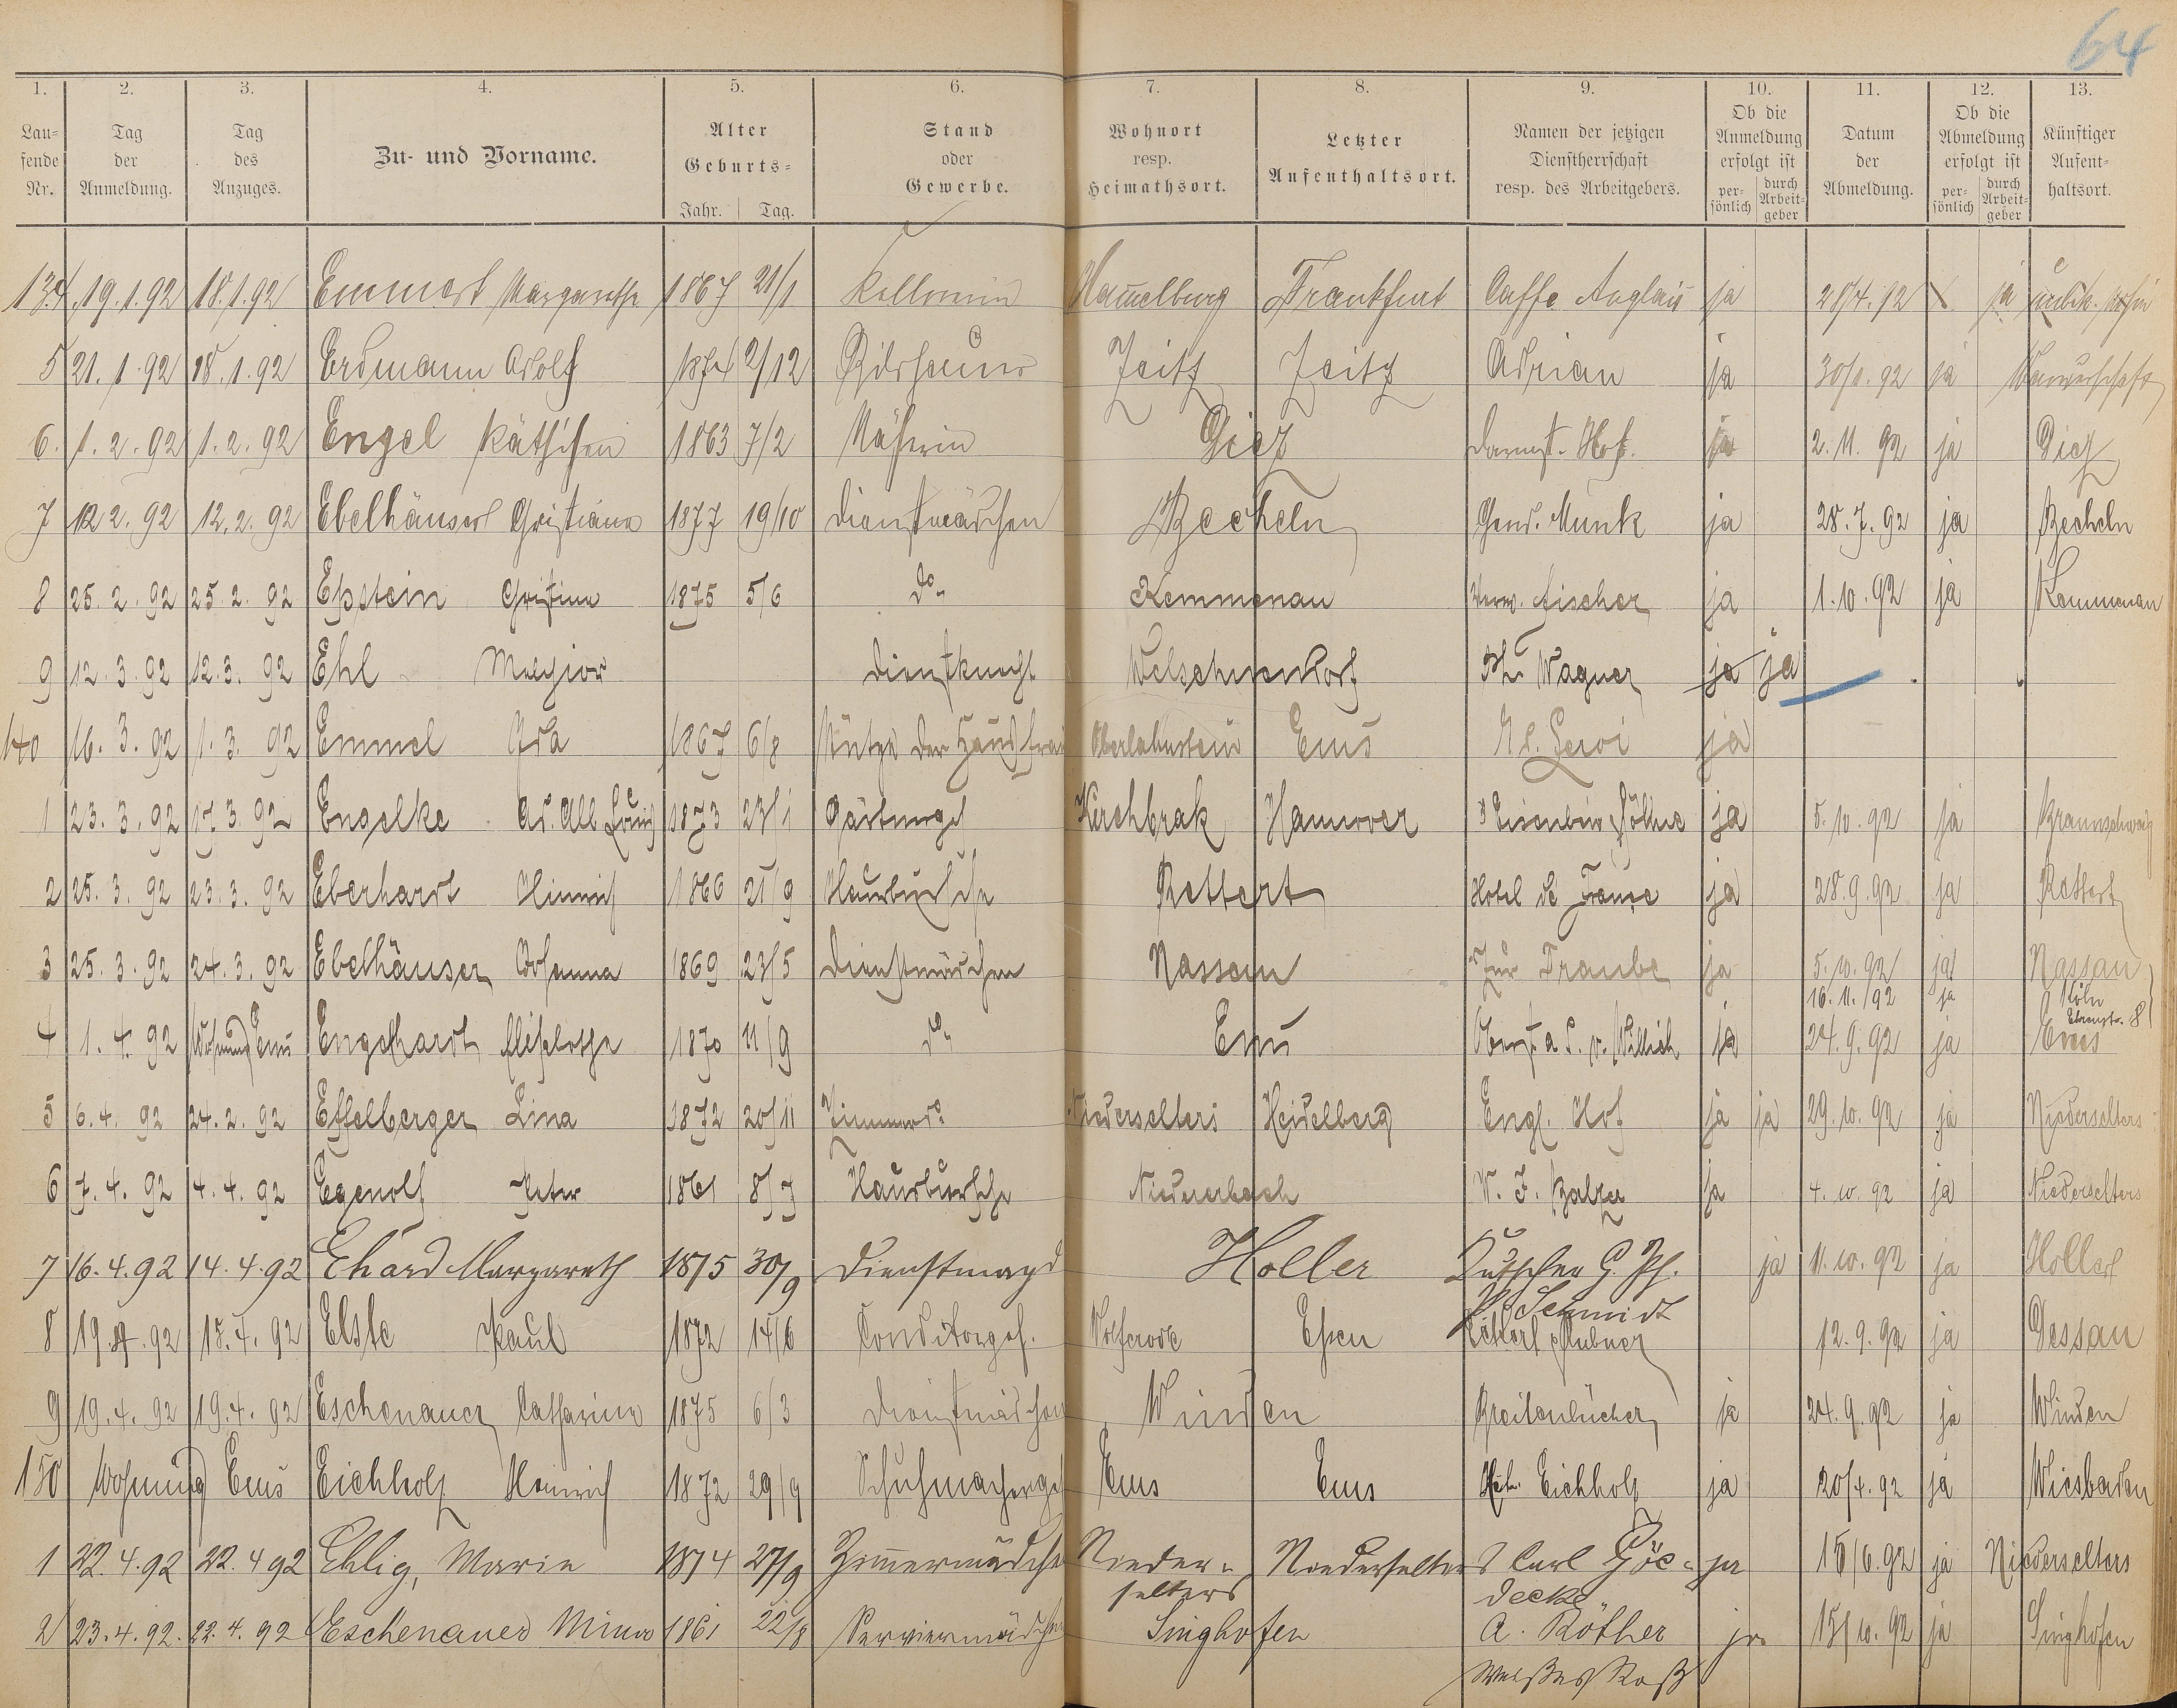 64
1. 2. 3. 4. 5. 6. 7. 8. 9. 10. 11. 12. 13.
Lau-
fende
Nr.
Tag
der
Anmeldung.
Tag
des
Anzuges.
Zu- und Vorname.
Alter
Geburts-
Jahr. Tag.
Stand
oder
Gewerbe.
Wohnort
resp.
Heimathsort.
Letzter
Aufenthaltsort.
Namen der jetzigen
Dienstherrschaft
resp. des Arbeitgebers.
Ob die
Anmeldung
erfolgt ist
per-
sönlich
durch
Arbeit-
geber
Datum
der
Abmeldung.
Ob die
Abmeldung
erfolgt ist
per-
sönlich
durch
Arbeit-
geber
Künftiger
Aufent-
haltsort.
134 19.1.92 18.1.92 Emmert Margarethe 1867 21/1 Kellnerin Hamelburg Frankfurt Caffe Anglais ja 28/4.92 ja
5 21.1.92 18.1.92 Erdmann Adolf 1874 2/12 Bildhauer Zeitz Zeitz Adrian ja 30/1.92 ja Wanderschaft
6. 1.2.92 1.2.92 Engel Käthchen 1863 7/2 Näherin Diez Darmst. Hof. ja 2.11.92 ja Diez
7 12 2.92 12.2.92 Ebelhäuser Christiane 1877 19/10 Dienstmädchen Becheln Gend. Munk ja 28.7.92 ja Becheln
8 25.2.92 25.2.92 Epstein Christine 1875 5/6 do Kemmenau Verw. Fischer ja 1.10.92 ja Kemmenau
9 12.3.92 12.3.92 Ehl Melchior Dienstknecht Welschneudorf Ph. Wagner ja ja
140 16.3.92 1.3.92 Emmel Ida 1867 6/8 Stütze der Hausfrau Oberlahnstein Ems M. Levi ja
1 23.3.92 17.3.92 Engelke Ad. Alb. Louis 1873 23/1 Gärtnergeh Kirchbrak Hannover ja 5.10.92 ja Braunschweig
2 25.3.92 23.3.92 Eberhardt Heinrich 1866 21/9 Hausbursche Rettert Hotel de France ja 28.9.92 ja Rettert
3 25.3.92 24.3.92 Ebelhäuser Johanna 1869 23/5 Dienstmädchen Nassau Zur Traube ja 5.10.92 ja Nassau
16.11.92 ja Köln
4 1.4.92 Wohnung Ems Engelhardt Elisabethe 1870 11/9 do Ems Oberst. a D. v. Willich ja 24.9.92 ja Ems
5 6.4.92 24.2.92 Effelberger Lina 1872 20/11 Zimmerd. Niederselters Heidelberg Engl. Hof ja ja 29.10.92 ja Niederselters
6 7.4.92 4.4.92 Egenolf Peter 1861 8/7 Hausbursche Niedererbach W. F. Balzer ja 4.10.92 ja Niederselters
7 16.4.92 14.4.92 Ehard Margareth 1875 30/9 Dienstmagd Holler Kutscher G. Ph. ja 11.10.92 ja Holler
Schmidt
8 19.4.92 18.4.92 Elste Paul 1872 14/6 Conditorgeh. Wolferode Essen 12.9.92 ja Dessau
9 19.4.92 19.4.92 Eschenauer Catharine 1875 6/3 Dienstmädchen Winden Breitenbücher ja 24.9.92 ja Winden
150 Wohnung Ems Eichholz Heinrich 1872 29/9 Schuhmachergeh Ems Ems Hch. Eichholz ja 20/4.92 ja Wiesbaden
1 22.4.92 22.4 92 Ehlig, Marie 1874 27/9 Zimmermädchen Nieder- Niederselters Carl Göe- ja 15/6.92 ja Niederselters
selters decke
2 23.4.92. 22.4.92 Eschenauer Mina 1861 22/8 Serviermädchen Singhofen A. Röther ja 15/10.92 ja Singhofen
Weißes Roß